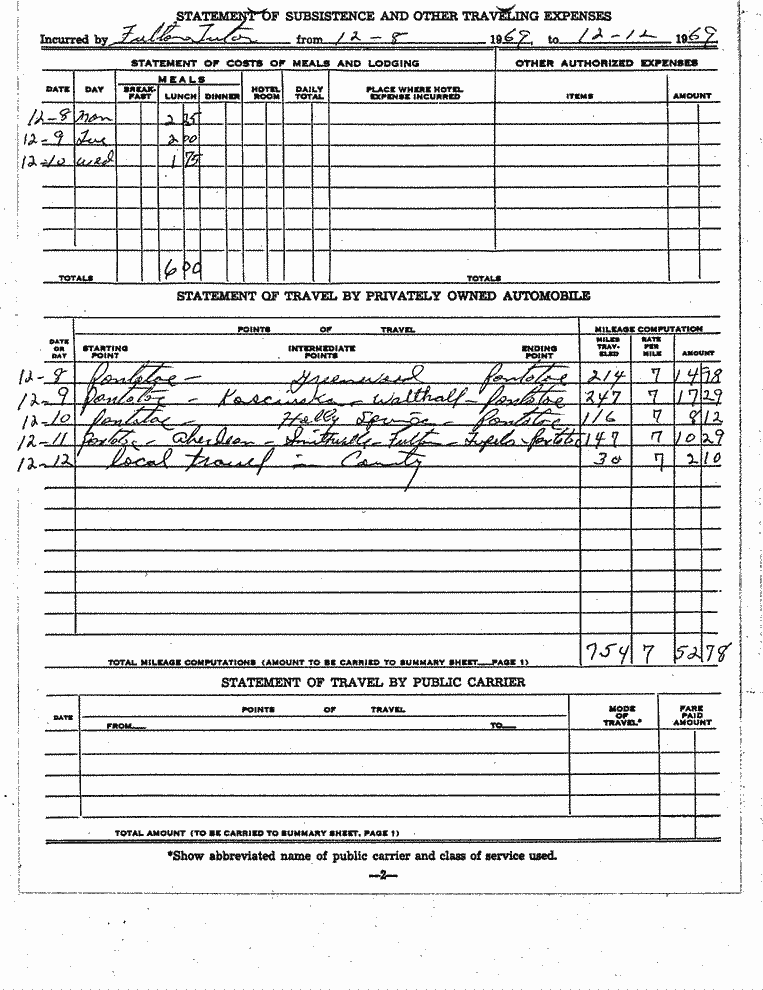 STATEMENT OF SUBSISTENCE AND OTHER TRAVELING EXPENSES
Incurred by Fulton Tutor from 12-8 1969, to 12-12 1969
STATEMENT OF COSTS OF MEALS AND LODGING OTHER AUTHORIZED EXPENSES
MEALS
DATE DAY BREAK-FAST LUNCH DINNER HOTEL ROOM DAILY TOTAL PLACE WHERE HOTEL EXPENSE INCURRED ITEMS AMOUNT
12-8 Mon 2 25
12-9 Tue 2 00
12-10 Wed 1 75
TOTALS 6 00 TOTALS
STATEMENT OF TRAVEL BY PRIVATELY OWNED AUTOMOBILE
POINTS OF TRAVEL MILEAGE COMPUTATION
DATE OR DAY STARTING POINT INTERMEDIATE POINTS ENDING POINT MILES TRAV-ELED RATE PER MILE AMOUNT
12-8 Pontotoc - Greenwood Pontotoc 214 7 14 98
12-9 Pontotoc - Kosciusko - Walthall - Pontotoc 247 7 17 29
12-10 Pontotoc - Holly Springs - Pontotoc 116 7 8 12
12-11 Pontotoc - Aberdeen - Smithville - Fulton - Tupelo - Pontotoc 147 7 10 29
12-12 local travel in County 30 7 2 10
TOTAL MILEAGE COMPUTATIONS (AMOUNT TO BE CARRIED TO SUMMARY SHEET__PAGE 1) 754 7 52 78
STATEMENT OF TRAVEL BY PUBLIC CARRIER
DATE POINTS OF TRAVEL MODE OF TRAVEL* FARE PAID AMOUNT
FROM__ TO__
TOTAL AMOUNT (TO BE CARRIED TO SUMMARY SHEET, PAGE 1)
*Show abbreviated name of public carrier and class of service used.
—2—